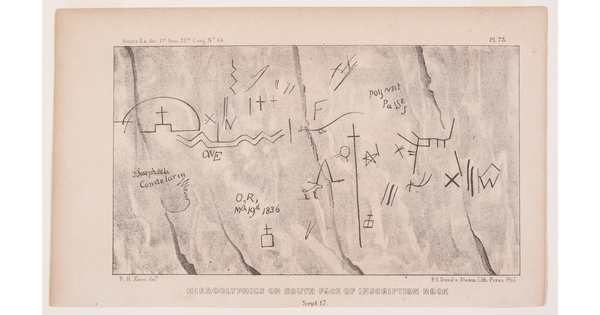 Senate Ex. doc. 1st Sess. 31st Cong. No. 64.
Pl. 73.
F
Pay
Passe
ONE
P. Joseph de la
Candelaria
O.R,
Mch 19d 1836
R. H. Kern delt.
P. S. Duval's Steam Lith. Press Phil.
HIEROGLYPHICS ON SOUTH FACE OF INSCRIPTION ROCK
Sept. 17.